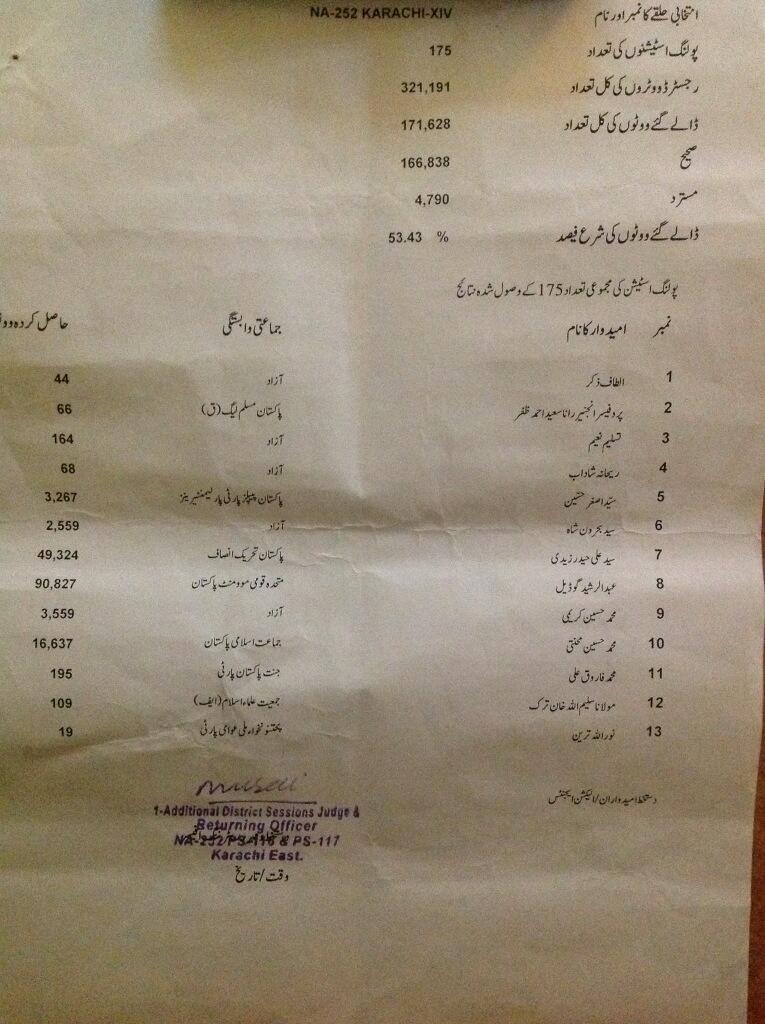 انتخابی حلقے کا نمبر اور نام NA-252 KARACHI-XIV
پولنگ اسٹیشنوں کی تعداد 175
رجسٹرڈ ووٹروں کی کل تعداد 321,191
ڈالے گئے ووٹوں کی کل تعداد 171,628
صحیح 166,838
مسترد 4,790
ڈالے گئے ووٹوں کی شرع فیصد 53.43 %
پولنگ اسٹیشن کی مجموعی تعداد 175 کے وصول شدہ نتائج
نمبر امیدوار کا نام جماعتی وابستگی حاصل کردہ
1 الطاف ذکر آزاد 44
2 پروفیسر انجنیر رانا سعید احمد ظفر پاکستان مسلم لیگ (ق) 66
3 تسلیم نعیم آزاد 164
4 ریحانہ شاداب آزاد 68
5 سید اصغر حسین پاکستان پیپلز پارٹی پارلیمنٹیرینز 3,267
6 سید بحر دن شاہ آزاد 2,559
7 سید علی حیدر زیدی پاکستان تحریک انصاف 49,324
8 عبدالرشید گوڈیل متحدہ قومی موومنٹ پاکستان 90,827
9 محمد حسین کریمی آزاد 3,559
10 محمد حسین محنتی جماعت اسلامی پاکستان 16,637
11 محمد فاروق علی جنت پاکستان پارٹی 195
12 مولانا سلیم اللہ خان ترک جمعیت علماء اسلام (ایف) 109
13 نور اللہ ترین پختونخواہ ملی عوامی پارٹی 19
دستخط امیدواران/الیکشن ایجنٹس
1-Additional District Sessions Judge &
Returning Officer
NA-252/PS-116 & PS-117
Karachi East.
وقت/تاریخ